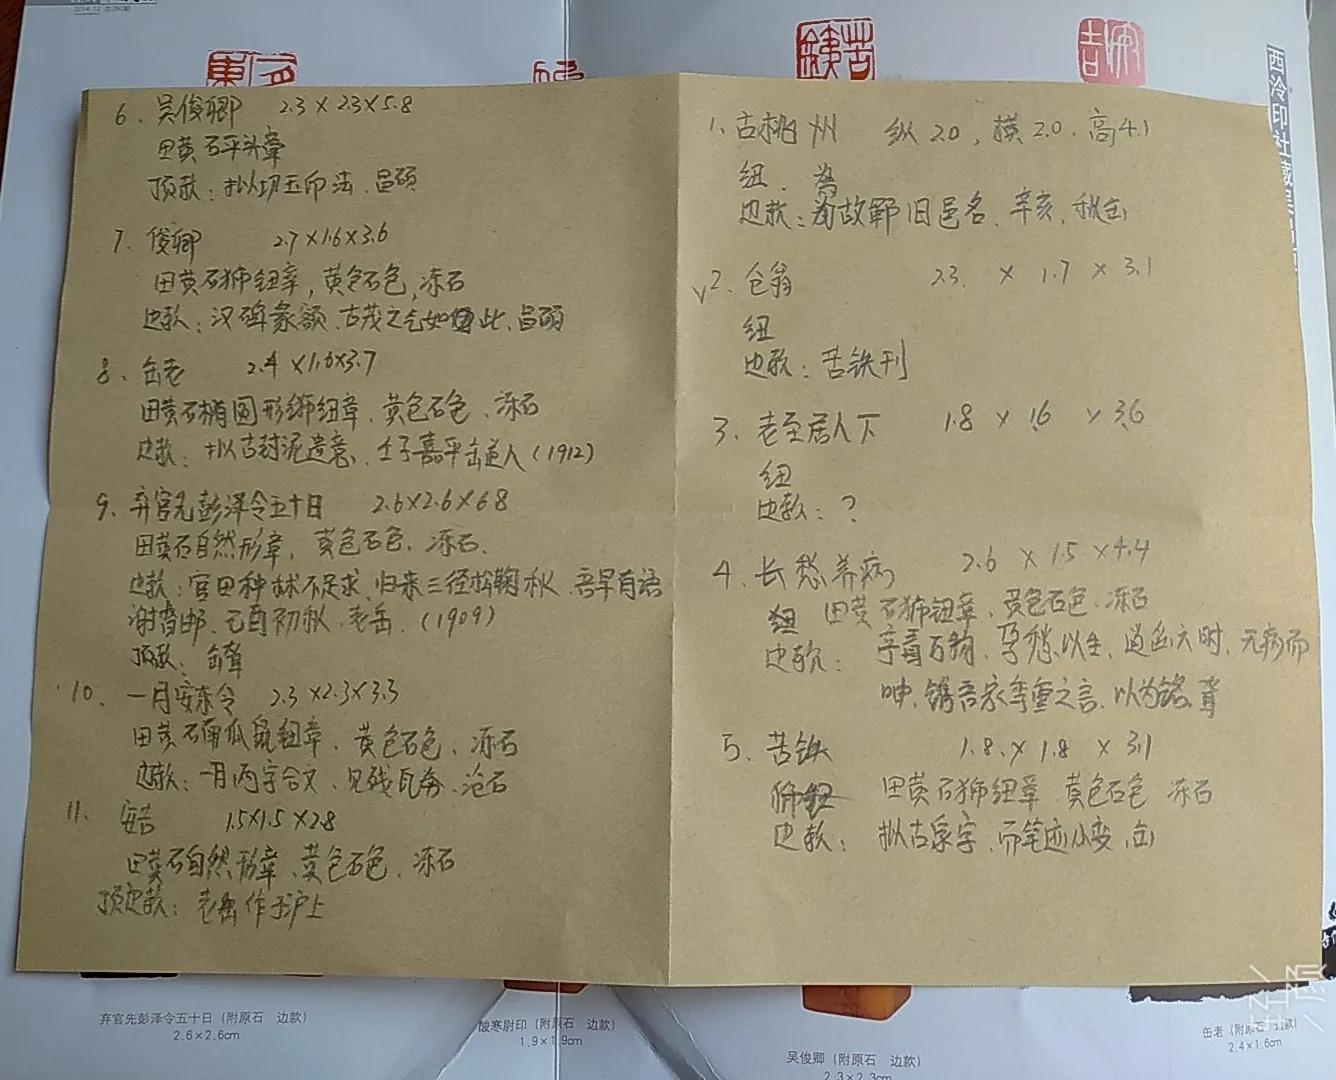 2014.12 总260期
西泠印社藏
6、吴俊卿 2.3×2.3×5.8
田黄石平头章
顶款：拟切玉印法、昌硕
7、俊卿 2.7×1.6×3.6
田黄石狮钮章，黄色石色，冻石
边款：汉碑篆额、古茂之气如此、昌硕
8、缶老 2.4×1.6×3.7
田黄石椭圆形狮钮章、黄色石色、冻石
边款：拟古封泥遗意、壬子嘉平缶道人(1912)
9、弃官先彭泽令五十日 2.6×2.6×6.8
田黄石自然形章，黄色石色、冻石、
边款：官田种秫不足求、归来三径松鞠秋、吾早有语
谢督邮、乙酉初秋、老缶、(1909)
顶款：缶
10、一月安东令 2.3×2.3×3.3
田黄石 瓜 钮章、黄色石色、冻石
边款：一月两字合文、见残瓦 、沧石
11、安吉 1.5×1.5×2.8
田黄石自然形章、黄色石色、冻石
顶边款：老缶作于沪上
1、古桃州 纵2.0，横2.0、高4.1
纽、为
边款：为故鄣旧邑名、辛亥、秋缶
√2、仓翁 2.3 × 1.7 × 3.1
纽
边款：苦铁刊
3、老至居人下 1.8 × 1.6 × 3.6
纽
边款：？
4、长愁养病 2.6 × 1.5 × 4.4
纽 田黄石狮钮章、黄色石色、冻石
边款： 亭毒万物、孕愁以生、遒 六时、无病而
呻、镌吾家季重之言、以为铭、聋
5、苦铁 1.8 × 1.8 × 3.1
田黄石狮纽章 黄色石色 冻石
边款： 拟古泉字、而笔迹小变、缶
弃官先彭泽令五十日（附原石 边款）
2.6×2.6cm
酸寒尉印（附原石 边款）
1.9×1.9cm
吴俊卿（附原石 边款）
2.3×2.3cm
缶老（附原石 边款）
2.4×1.6cm